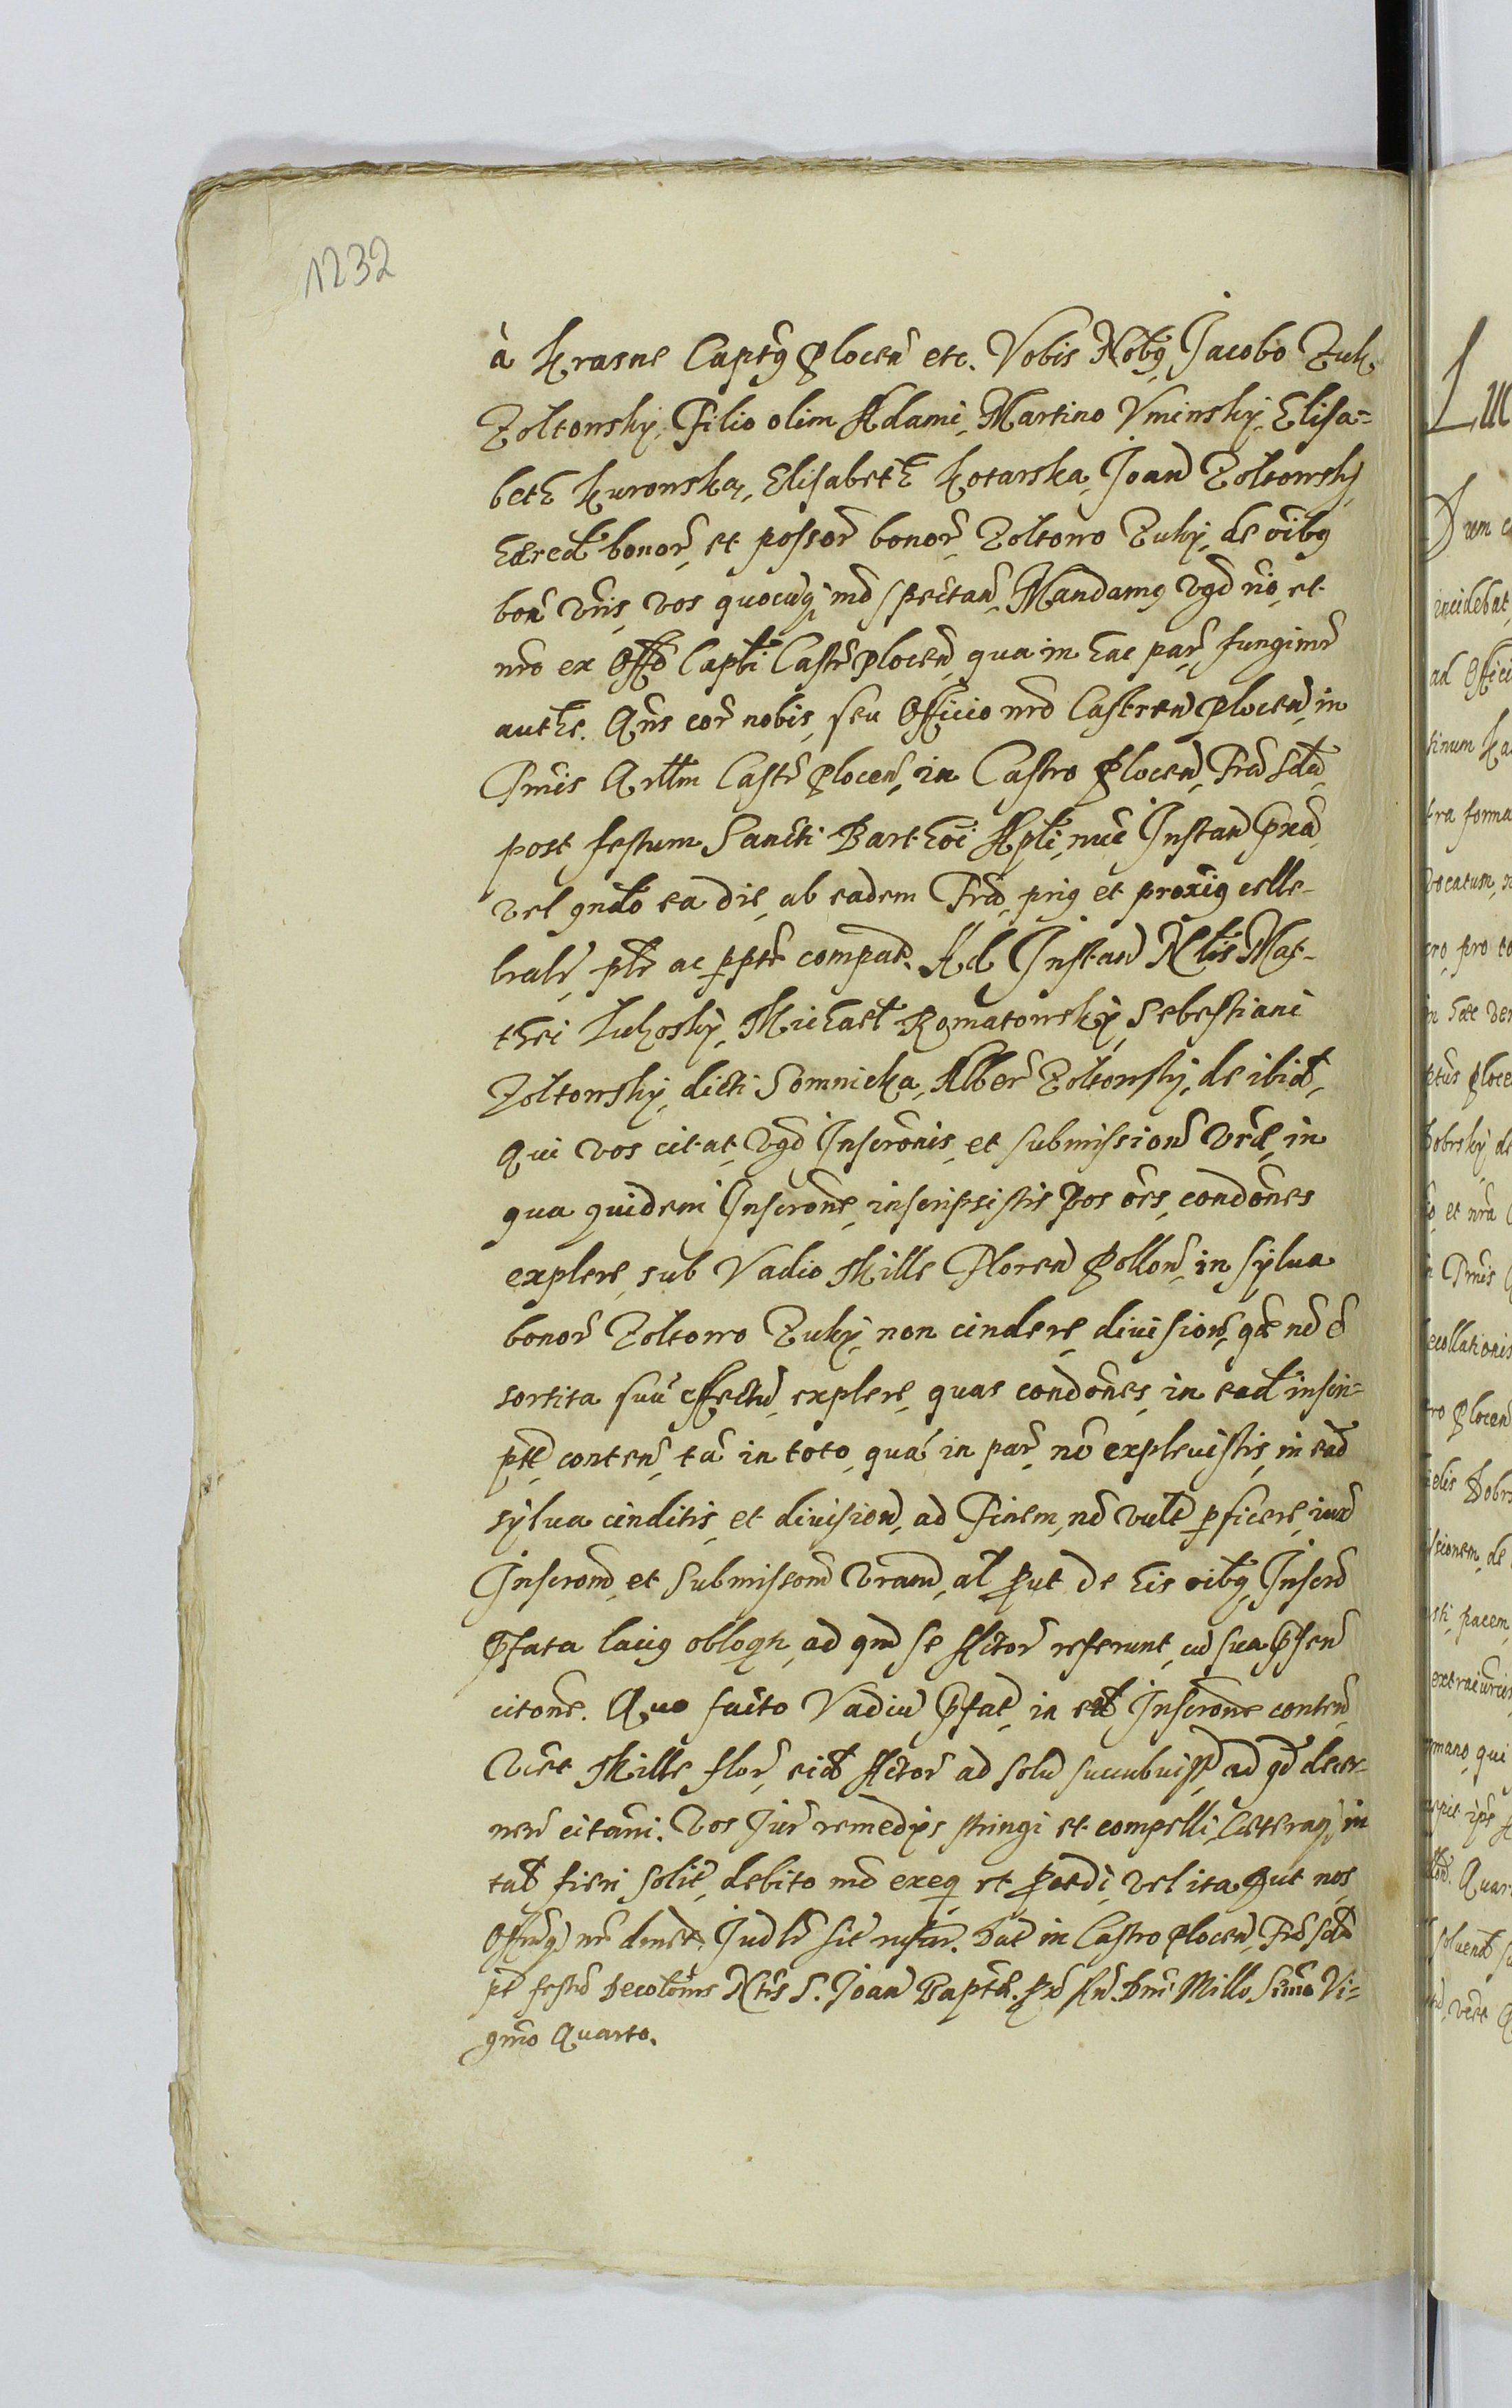 1232
à Krasne Captg Plocen etc. Vobis Nobg Jacobo Zuk
Zoltowsky, Filio olim Adami, Martino Vminsky, Elisa=
beth Kurowska, Elisabeth Kotarska, Joan Zoltowsky
haered bonor, et possor bonor, Zoltowo Zuky, de oibg
bon vris, vos quocuqz md spectan, Mandamg vgd nro, et
nro ex Offo Capti Castr Plocen, qua in hac par fungimr
authe. Qns cor nobis, seu Officio nro Castren Plocen, in
Prmis Qrllm Castr Plocen, in Castro Plocen, Fra Scda
post festum Sancti Barthoi Apli, nuc Instan Pxa
vel qndo ea die, ab eadem Fra, prig et proxig celle-
brale, plr ac pptr compat. Ad Instan Nlis Mat-
thei Luhosky, Michael Romatowsky, Sebestiani
Zoltowsky, dicti Somnicka, Alber Zoltowsky, de ibid,
Qui vos citat, vgd Inscronis, et submission vrae, in
qua quidem Inscrone, inscripsistis Vos oes, condones
explere, sub Vadio Mille Floren Pollon, in sylua
bonor Zoltowo Zuky, non cindere, diuision, qae no e
sortita suu effectu, explere, quas condones, in ead inscri=
pte, conten, ta in toto, qua in par, no explevistis, in ead
sylua cinditis, et diuision, ad Finem, no vult pficere, iuxa
Inscrom, et Submissom vram, al put de his oibg, Inscro
Pfata lacig obloqt, ad qm se Actor referunt, cu sua Psen
citone. Quo facto Vadiu Pfat, in ead Inscrone conten
vict Mille flor, eisd Actor ad solu succubuiss, ad qd decer-
nen citami. Vos Jur remedijs stringi et compelli, Caeteraqz in
tab fieri solit, debito md exeq et pcedi, vel ita put nos
Offmqz nr dmet, Judlr sit Dat in Castro Plocen, Fra Scda
pt festu Decolonis Nlis S. Joan Baptae. Px An Dni Millo Simo Vi=
gmo Quarto.
Lu
incidebat
ad Offici
tinum Ka
tra forma
vocatum,
pro to
Dobrsky de
et nra
ecollationis
tro Plocen
elis Dobrs
issionem, de
pacem
mano, qui
Quar